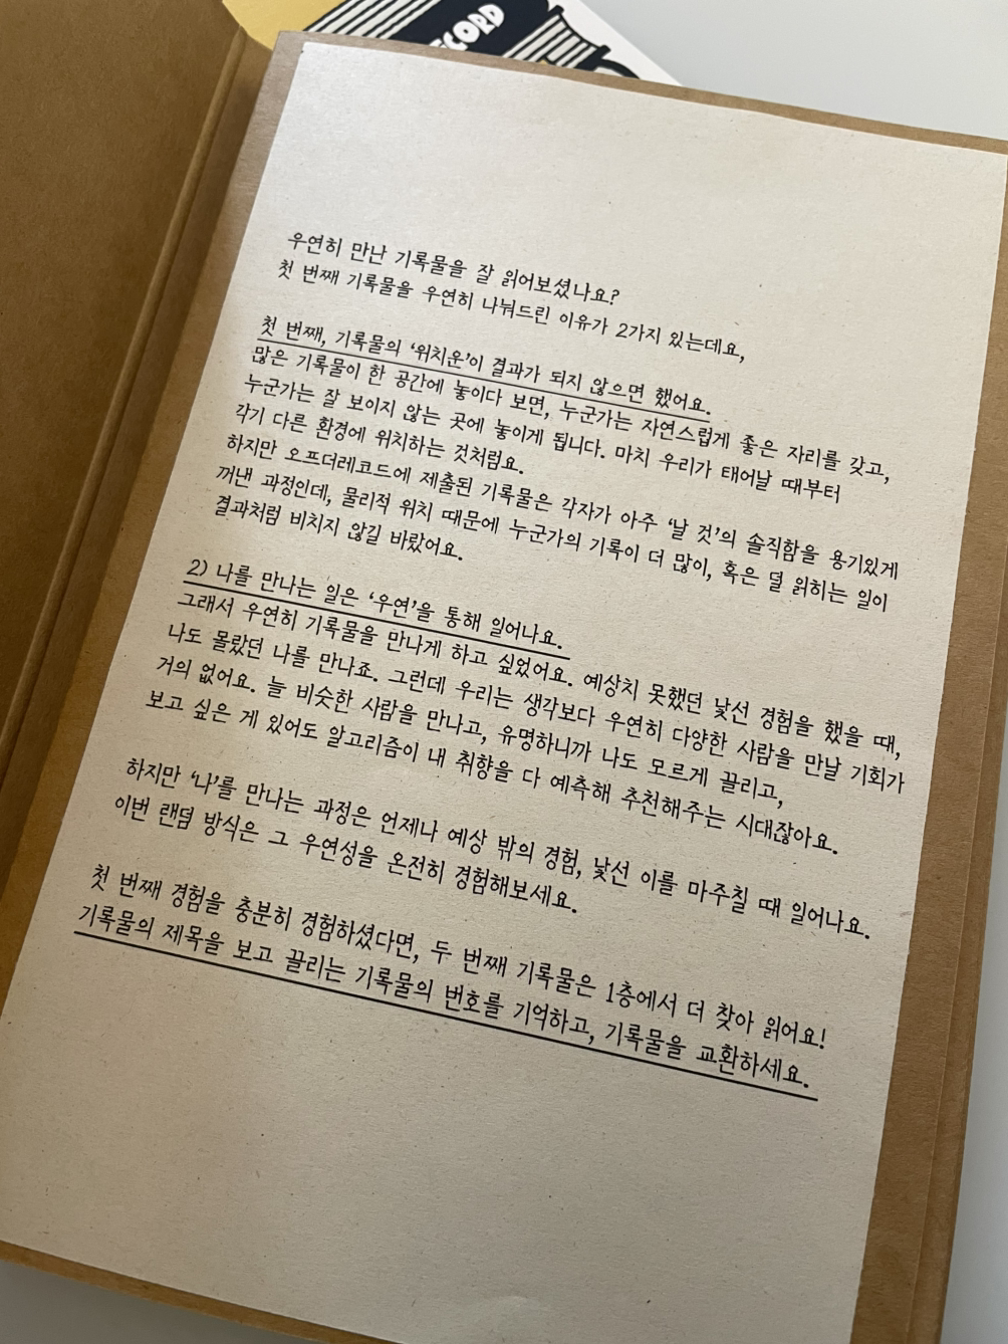 ECORD
우연히 만난 기록물을 잘 읽어보셨나요?
첫 번째 기록물을 우연히 나눠드린 이유가 2가지 있는데요,
첫 번째, 기록물의 ‘위치운’이 결과가 되지 않으면 했어요.
많은 기록물이 한 공간에 놓이다 보면, 누군가는 자연스럽게 좋은 자리를 갖고,
누군가는 잘 보이지 않는 곳에 놓이게 됩니다. 마치 우리가 태어날 때부터
각기 다른 환경에 위치하는 것처럼요.
하지만 오프더레코드에 제출된 기록물은 각자가 아주 ‘날 것’의 솔직함을 용기있게
꺼낸 과정인데, 물리적 위치 때문에 누군가의 기록이 더 많이, 혹은 덜 읽히는 일이
결과처럼 비치지 않길 바랐어요.
2) 나를 만나는 일은 ‘우연’을 통해 일어나요.
그래서 우연히 기록물을 만나게 하고 싶었어요. 예상치 못했던 낯선 경험을 했을 때,
나도 몰랐던 나를 만나죠. 그런데 우리는 생각보다 우연히 다양한 사람을 만날 기회가
거의 없어요. 늘 비슷한 사람을 만나고, 유명하니까 나도 모르게 끌리고,
보고 싶은 게 있어도 알고리즘이 내 취향을 다 예측해 추천해주는 시대잖아요.
하지만 ‘나’를 만나는 과정은 언제나 예상 밖의 경험, 낯선 이를 마주칠 때 일어나요.
이번 랜덤 방식은 그 우연성을 온전히 경험해보세요.
첫 번째 경험을 충분히 경험하셨다면, 두 번째 기록물은 1층에서 더 찾아 읽어요!
기록물의 제목을 보고 끌리는 기록물의 번호를 기억하고, 기록물을 교환하세요.